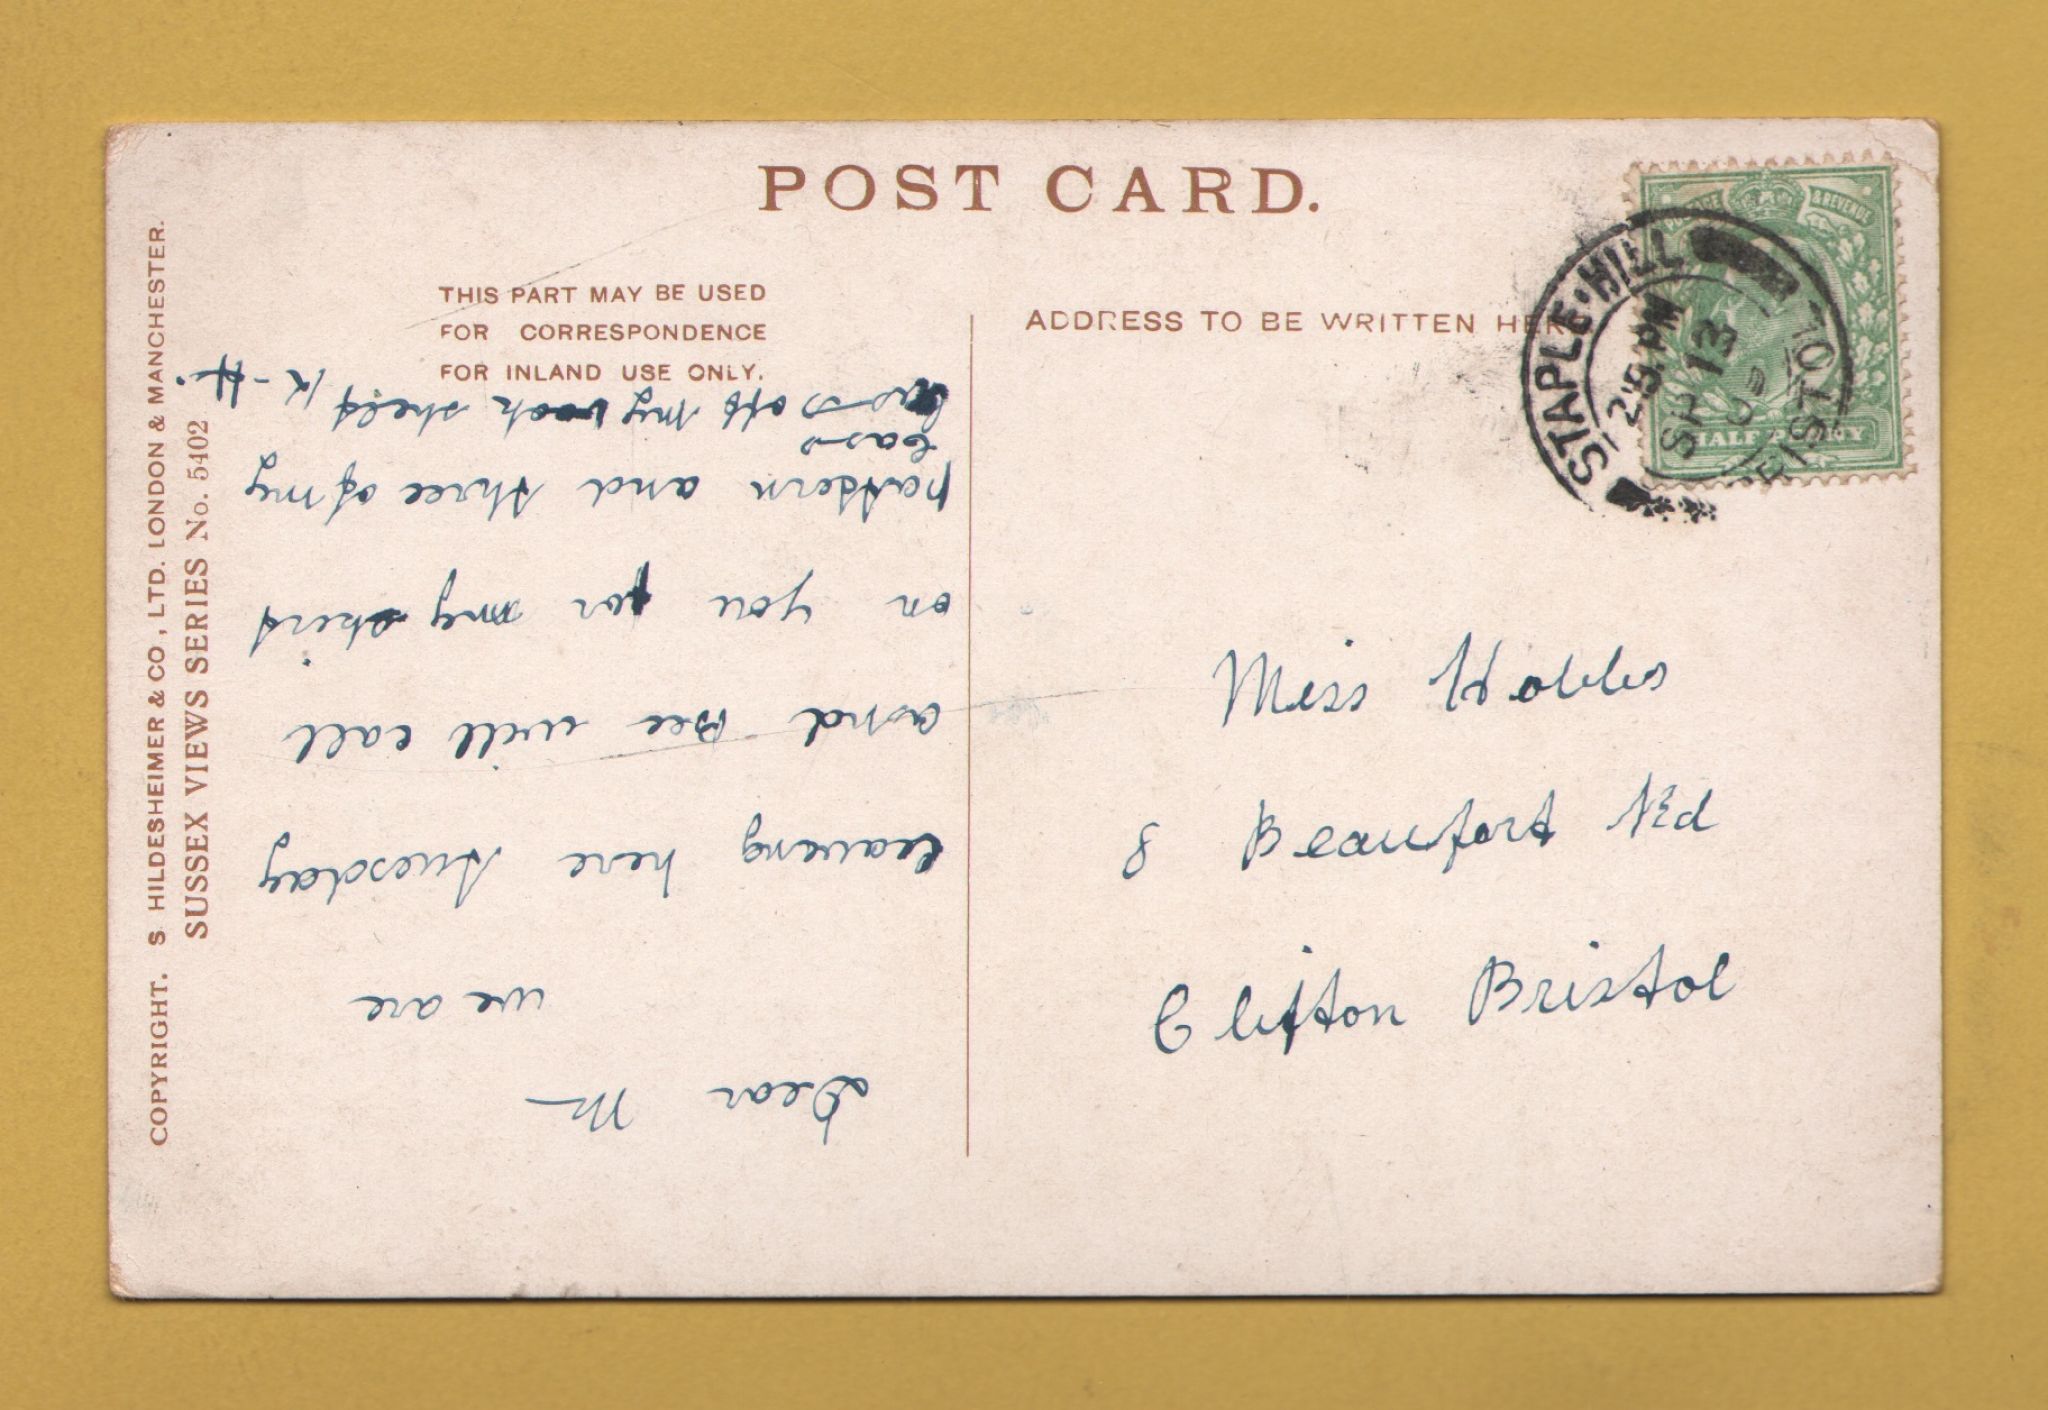 POST CARD.
THIS PART MAY BE USED
FOR CORRESPONDENCE
FOR INLAND USE ONLY.
ADDRESS TO BE WRITTEN HERE
POSTAGE & REVENUE
HALF PENNY
STAPLE·HILL
BRISTOL
SP 13
COPYRIGHT. S HILDESHEIMER & CO, LTD. LONDON & MANCHESTER.
SUSSEX VIEWS SERIES No. 5402
Dear M
we are
leaving here tuesday
and Bee will call
on you for my skirt
pattern and three of my
bass
off my shelf K-H.
Miss Hobbs
8 Beaufort Rd
Clifton Bristol